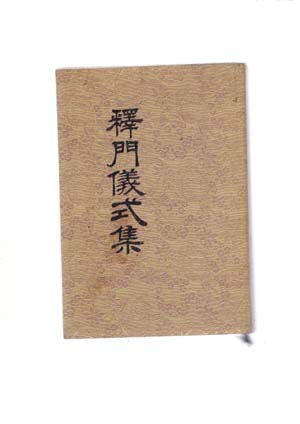 釋門儀式集